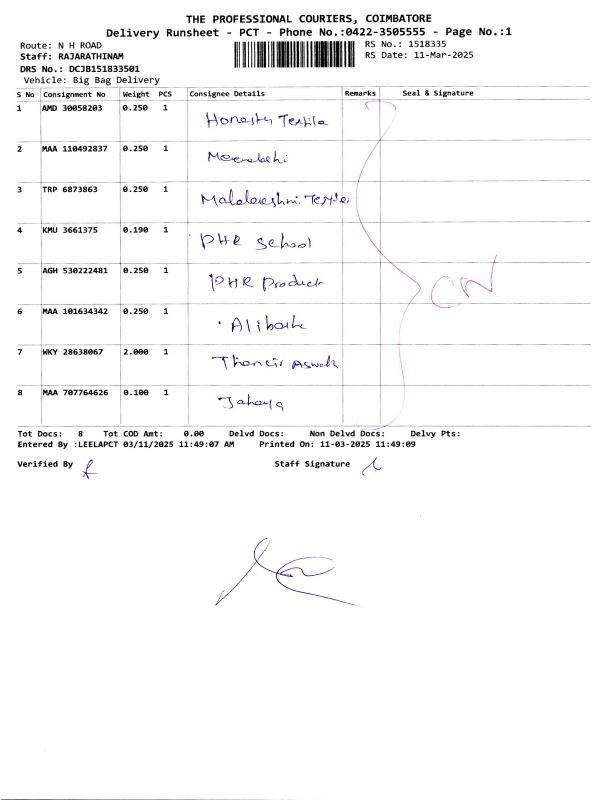 THE PROFESSIONAL COURIERS, COIMBATORE
Delivery Runsheet - PCT - Phone No.:0422-3505555 - Page No.:1
Route: N H ROAD RS No.: 1518335
Staff: RAJARATHINAM RS Date: 11-Mar-2025
DRS No.: DCJB151833501
Vehicle: Big Bag Delivery
S No Consignment No Weight PCS Consignee Details Remarks Seal & Signature
1 AMD 30058203 0.250 1 Honesty Textile
2 MAA 110492837 0.250 1
3 TRP 6873863 0.250 1
4 KMU 3661375 0.190 1 PHR School
5 AGH 530222481 0.250 1 PHR Product
6 MAA 101634342 0.250 1
7 WKY 28638067 2.000 1
8 MAA 707764626 0.100 1
CN
Tot Docs: 8 Tot COD Amt: 0.00 Delvd Docs: Non Delvd Docs: Delvy Pts:
Entered By :LEELAPCT 03/11/2025 11:49:07 AM Printed On: 11-03-2025 11:49:09
Verified By Staff Signature